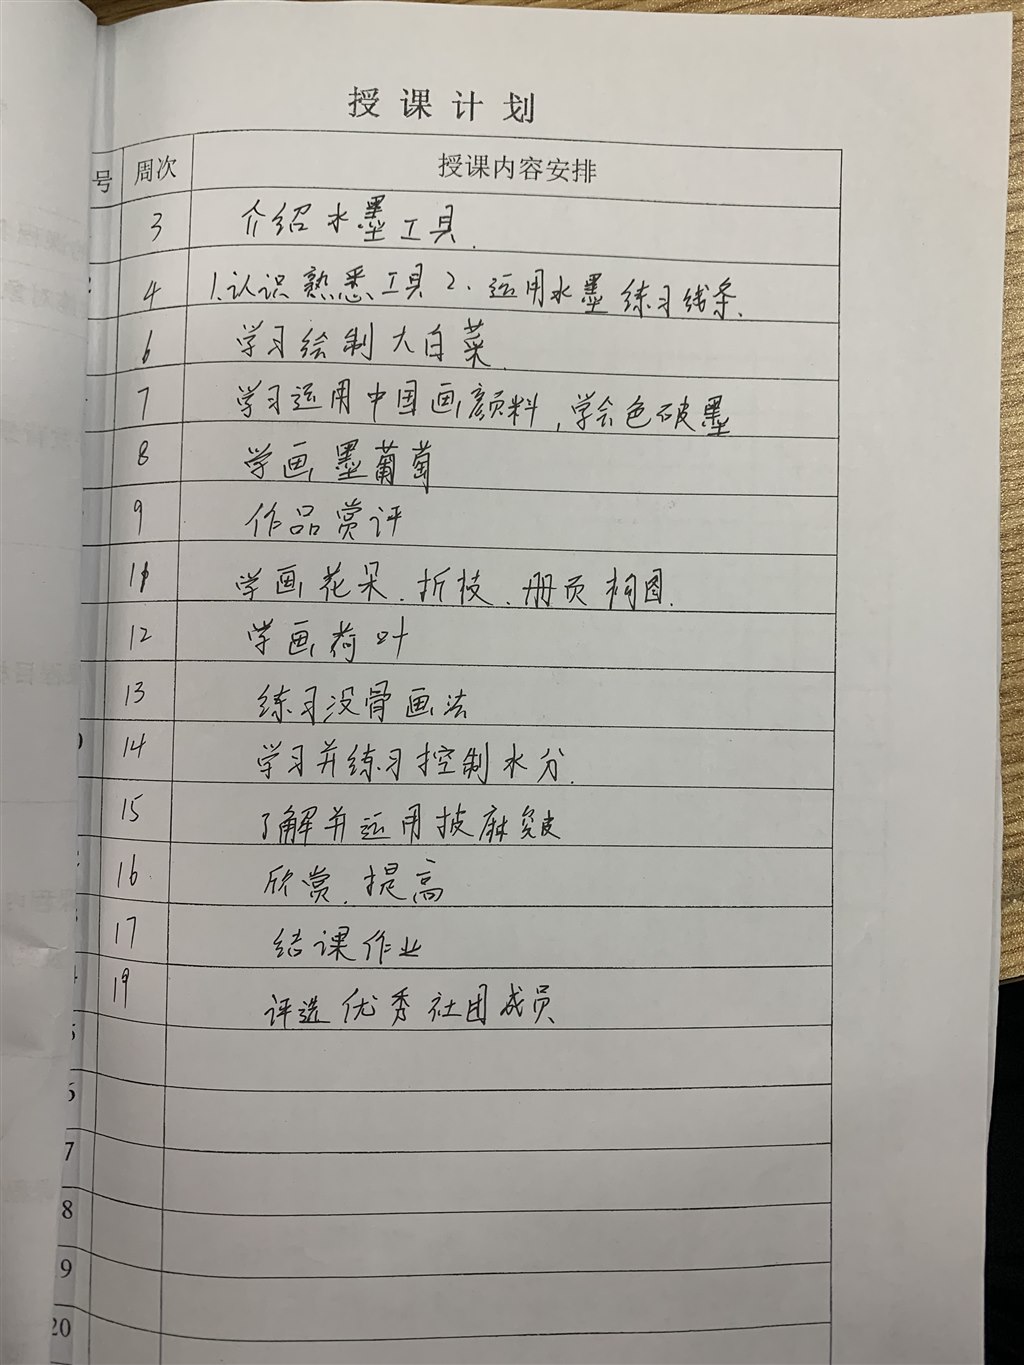 授课计划
号 周次 授课内容安排
3 介绍水墨工具.
4 1.认识熟悉工具 2.运用水墨练习线条.
6 学习绘制大白菜.
7 学习运用中国画颜料,学会色破墨
8 学画墨葡萄
9 作品赏评
11 学画花朵.折枝.册页构图.
12 学画荷叶
13 练习没骨画法
14 学习并练习控制水分.
15 了解并运用披麻皴
16 欣赏.提高
17 结课作业
19 评选优秀社团成员
7
8
9
20